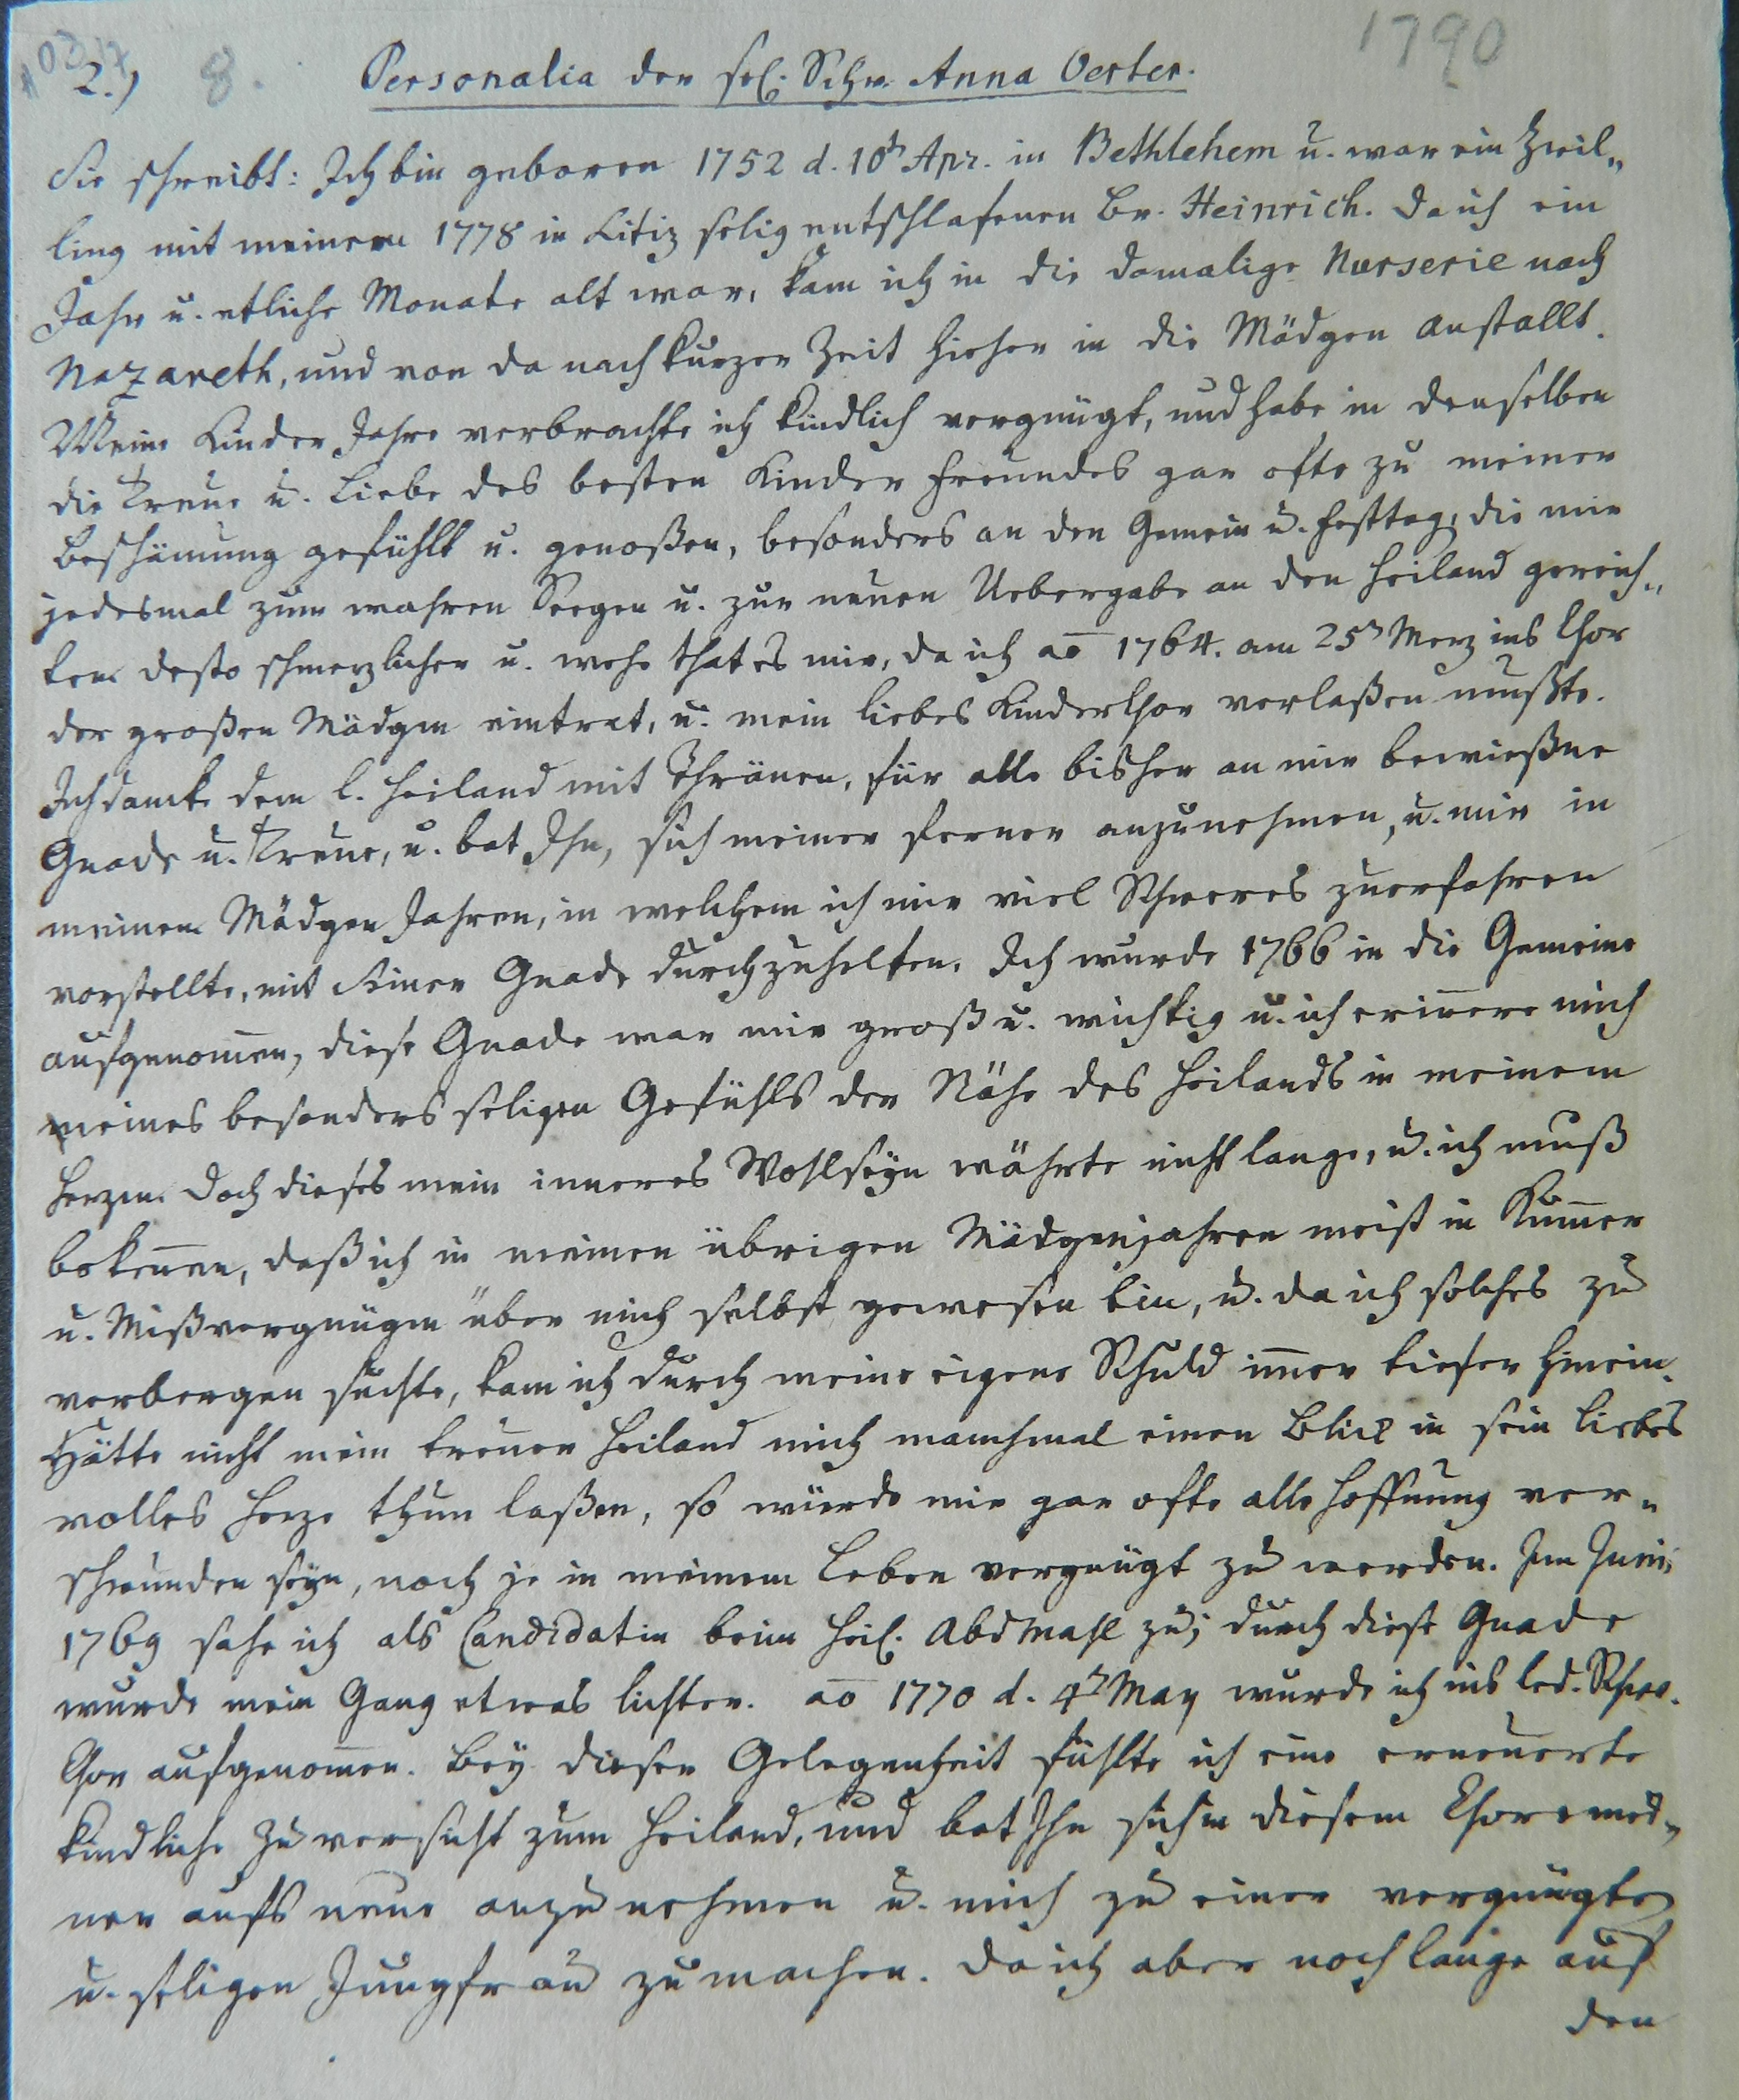 10317
2.) 8. Personalia der sel. Schw. Anna Oerter. 1790
Sie schreibt: Ich bin geboren 1752 d. 10t Apr. in Bethlehem u. war ein Zwil„
ling mit meinem 1778 in Litiz selig entschlafenen Br. Heinrich. Da ich ein
Jahr u. etliche Monate alt war, kam ich in die damalige Nurserie nach
Nazareth, und von da nach kurzer Zeit hieher in die Mädgen Anstallt.
Meine Kinder Jahre verbrachte ich kindlich vergnügt, und habe in denselben
die Treue u. Liebe des besten Kinder Freundes gar ofte zu meiner
Beschämung gefühlt u. genoßen, besonders an den Gemein u. Festtag, die mir
jedesmal zum wahren Seegen u. zur neuen Uebergabe an den Heiland gereich„
ten. Desto schmerzlicher u. wehe that es mir, da ich aō 1764. am 25n Merz ins Chor
der großen Mädgen eintrat, u. mein liebes Kinderchor verlaßen mußte.
Ich dankte dem l. Heiland mit Thränen, für alle bisher an mir bewießne
Gnade u. Treue, u. bat Ihn, sich meiner ferner anzunehmen, u. mir in
meinen Mädgen Jahren, in welchem ich mir viel Schweres zuerfahren
vorstellte, mit Seiner Gnade durchzuhelfen. Ich wurde 1766 in die Gemeine
aufgenom̄en, diese Gnade war mir groß u. wichtig u. ich erin̄ere mich
meines besonders seligen Gefühls der Nähe des Heilands in meinem
Herzen. Doch dieses mein inneres Wohlseyn währte nicht lange, u. ich muß
beken̄en, daß ich in meinen übrigen Mädgenjahren meist in Kum̄er
u. Mißvergnügen über mich selbst gewesen bin, u. da ich solches zu
verbergen suchte, kam ich durch meine eigene Schuld im̄er tiefer hinein.
Hätte nicht mein treuer Heiland mich manchmal einen Blick in sein liebes
volles Herze thun laßen, so würde mir gar ofte alle Hoffnung ver„
schwunden seyn, noch je in meinem Leben vergnügt zu werden. Im Juni
1769 sahe ich als Candidatin beim Heil. Abdmahl zu; durch diese Gnade
wurde mein Gang etwas lichter. aō 1770 d. 4t May wurde ich ins led. Schw.
Chor aufgenom̄en. Bey dieser Gelegenheit fühlte ich eine erneuerte
kindliche Zuversicht zum Heiland, und bat Ihn sich in diesem Chore mei„
ner aufs neue anzunehmen u. mich zu einer vergnügten
u. seligen Jungfrau zu machen. Da ich aber noch lange auf
den